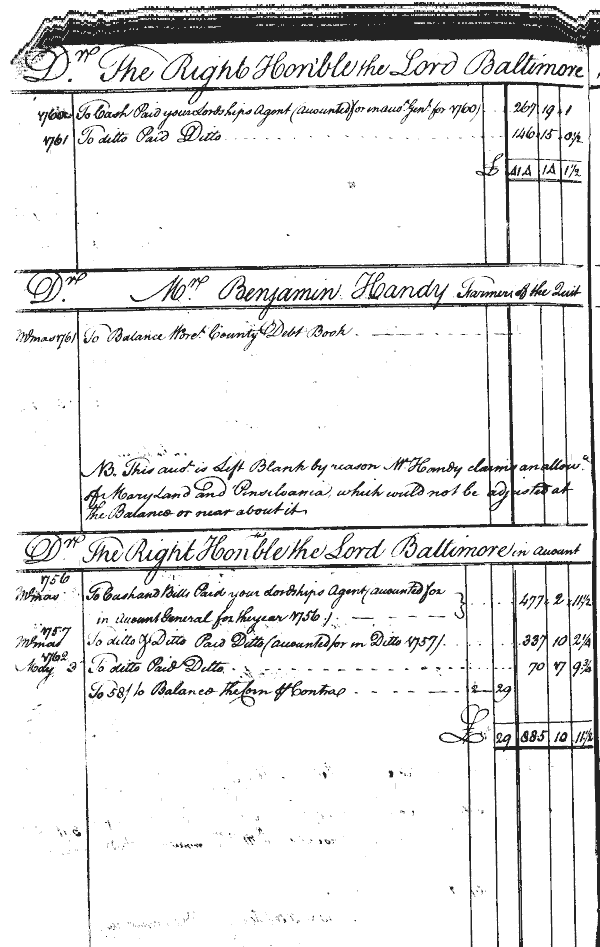 Dr The Right Honble the Lord Baltimore
1760 To Cash Paid your Lordships Agent (accounted for in acct Genl for 1760) 267 19 1
1761 To ditto Paid Ditto 146 15 0½
£ 414 14 1½
Dr Mr Benjamin Handy Farmer of the Quit
Mmas 1761 To Balance Worcr County Debt Book
NB. This acct is Left Blank by reason Mr Handy claims an allow
of Maryland and Pensilvania, which could not be adjusted at
the Balance or near about it
Dr The Right Honble the Lord Baltimore in Account
1756
Mmas To Cash and Bills Paid your Lordships Agent (accounted for
in Account General for the year 1756) 477 2 11½
1757
Mmas To ditto & Ditto Paid Ditto (accounted for in Ditto 1757) 337 10 2¼
1762
3 To ditto Paid Ditto 70 17 9¾
To 58/ to Balance the Coin & Contra 2 29
£ 29 885 10 11½